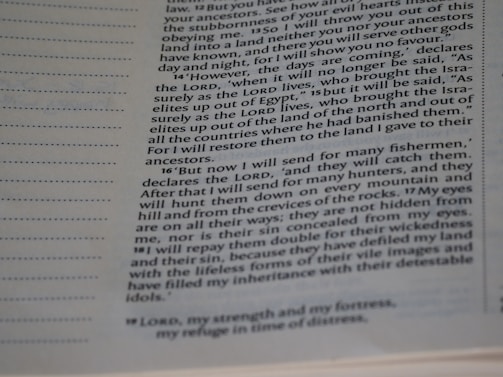 law. 12 But you have
your ancestors. See how all of
the stubbornness of your evil hearts instead
obeying me. 13 So I will throw you out of this
land into a land neither you nor your ancestors
have known, and there you will serve other gods
day and night, for I will show you no favour."
14 'However, the days are coming,' declares
the LORD, 'when it will no longer be said, "As
surely as the LORD lives, who brought the Isra-
elites up out of Egypt," 15 but it will be said, "As
surely as the LORD lives, who brought the Isra-
elites up out of the land of the north and out of
all the countries where he had banished them."
For I will restore them to the land I gave to their
ancestors.
16 'But now I will send for many fishermen,'
declares the LORD, 'and they will catch them.
After that I will send for many hunters, and they
will hunt them down on every mountain and
hill and from the crevices of the rocks. 17 My eyes
are on all their ways; they are not hidden from
me, nor is their sin concealed from my eyes.
18 I will repay them double for their wickedness
and their sin, because they have defiled my land
with the lifeless forms of their vile images and
have filled my inheritance with their detestable
idols.'
19 LORD, my strength and my fortress,
my refuge in time of distress,